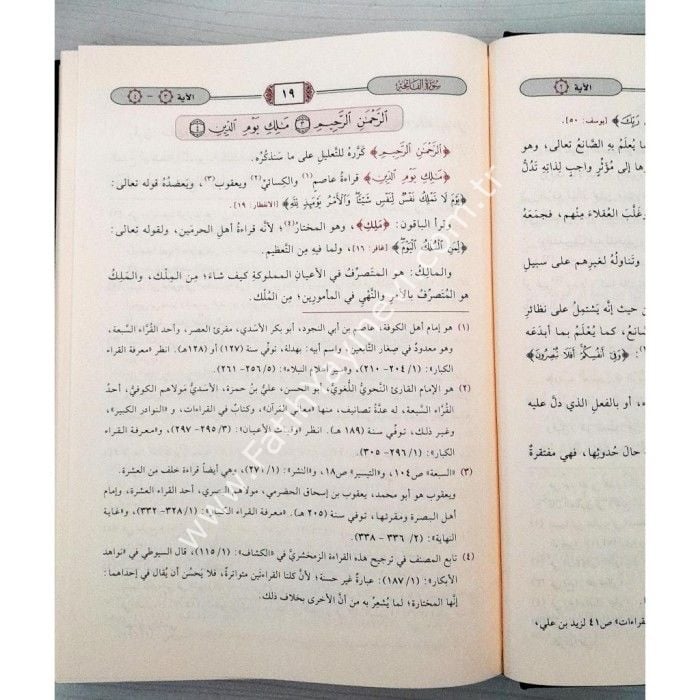 سورة الفاتحة
١٩
الآية ٣ - ٤
الرَّحْمَنِ الرَّحِيمِ ٣ مَالِكِ يَوْمِ الدِّينِ ٤
﴿الرَّحْمَنِ الرَّحِيمِ﴾ كَرَّرَهُ للتَّعليلِ على ما سنَذكُرُه.
﴿مَالِكِ يَوْمِ الدِّينِ﴾ قراءةُ عاصمٍ(١) والكِسائيِّ(٢) ويعقوبَ(٣)، ويَعضدُهُ قوله تعالى:
﴿يَوْمَ لَا تَمْلِكُ نَفْسٌ لِنَفْسٍ شَيْئًا وَالْأَمْرُ يَوْمَئِذٍ لِلَّهِ﴾ [الانفطار: ١٩].
وقرأ الباقون: ﴿مَلِكِ﴾، وهو المختارُ(٤)؛ لأنَّه قراءةُ أهلِ الحرمَين، ولقوله تعالى:
﴿لِمَنِ الْمُلْكُ الْيَوْمَ﴾ [غافر: ١٦]، ولما فيه من التَّعظيم.
والمالِكُ: هو المتصرِّفُ في الأعيانِ المملوكةِ كيف شاءَ؛ مِن المِلْك، والمَلِكُ
هو المُتصرِّفُ بالأمرِ والنَّهْي في المأمورين؛ مِن المُلْك.
(١) هو إمام أهل الكوفة، عاصم بن أبي النجود، أبو بكر الأسدي، مقرئ العصر، وأحد القُرَّاء السَّبعة،
وهو معدودٌ في صِغار التَّابعين، واسم أبيه: بهدلة، توفِّي سنة (١٢٧) أو (١٢٨هـ). انظر «معرفة القراء
الكبار»: (١/ ٢٠٤- ٢١٠)، و«سير أعلام النبلاء»: (٥/ ٢٥٦- ٢٦١).
(٢) هو الإمام القارئ النَّحويُّ اللُّغويُّ، أبو الحسن، عليُّ بنُ حمزة، الأسديُّ مَولاهم الكوفيُّ، أحدُ
القُرَّاء السَّبعة، له عدَّةُ تصانيف، منها «معاني القرآن»، وكتابٌ في القراءات، و«النوادر الكبير»،
وغير ذلك، توفِّي سنة (١٨٩ هـ). انظر «وفيات الأعيان»: (٣/ ٢٩٥- ٢٩٧)، و«معرفة القراء
الكبار»: (١/ ٢٩٦- ٣٠٥).
(٣) «السبعة» ص١٠٤، و«التيسير» ص١٨، و«النشر»: (١/ ٢٧١)، وهي أيضاً قراءة خلف من العشرة.
ويعقوب هو أبو محمد، يعقوب بن إسحاق الحضرمي، مولاهم البصري، أحد القراء العشرة، وإمام
أهل البصرة ومقرئها، توفي سنة (٢٠٥ هـ). «معرفة القراء الكبار»: (١/ ٣٢٨- ٣٣٢)، و«غاية
النهاية»: (٢/ ٣٣٦ - ٣٣٨).
(٤) تابع المصنف في ترجيح هذه القراءة الزمخشريَّ في «الكشاف»: (١/ ١١٥)، قال السيوطي في «نواهد
الأبكار»: (١/ ١٨٧): عبارةٌ غير حسنة؛ لأنَّ كلتا القراءتين متواترة، فلا يَحسُن أن يُقال في إحداهما:
إنَّها المختارة؛ لما يُشعِرُ به من أنَّ الأخرى بخلاف ذلك.
الآية ٢
رَبِّكَ﴾ [يوسف: ٥٠].
ما يُعلَمُ به الصَّانعُ تعالى، وهو
ها إلى مُؤثِّرٍ واجبٍ لذاتِه تَدلُّ
وغَلَّبَ العُقلاءَ منهم، فجمَعَهُ
وتَناوُلُهُ لغيرِهم على سبيلِ
من حيث إنَّه يَشتمِلُ على نظائرِ
الصَّانعُ، كما يُعلَمُ بما أبدَعَه
﴿وَفِي أَنْفُسِكُمْ أَفَلَا تُبْصِرُونَ﴾
، أو بالفعلِ الذي دلَّ عليه
حالَ حُدوثِها، فهي مفتقرةٌ
القراءات» ص٤١ لزيد بن علي،
www.FatihYayinevi.com.tr